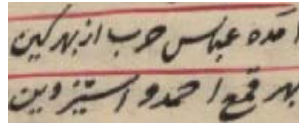 آمده عباس حرب از بهر کین
بهر قمع احمد و استیز دین